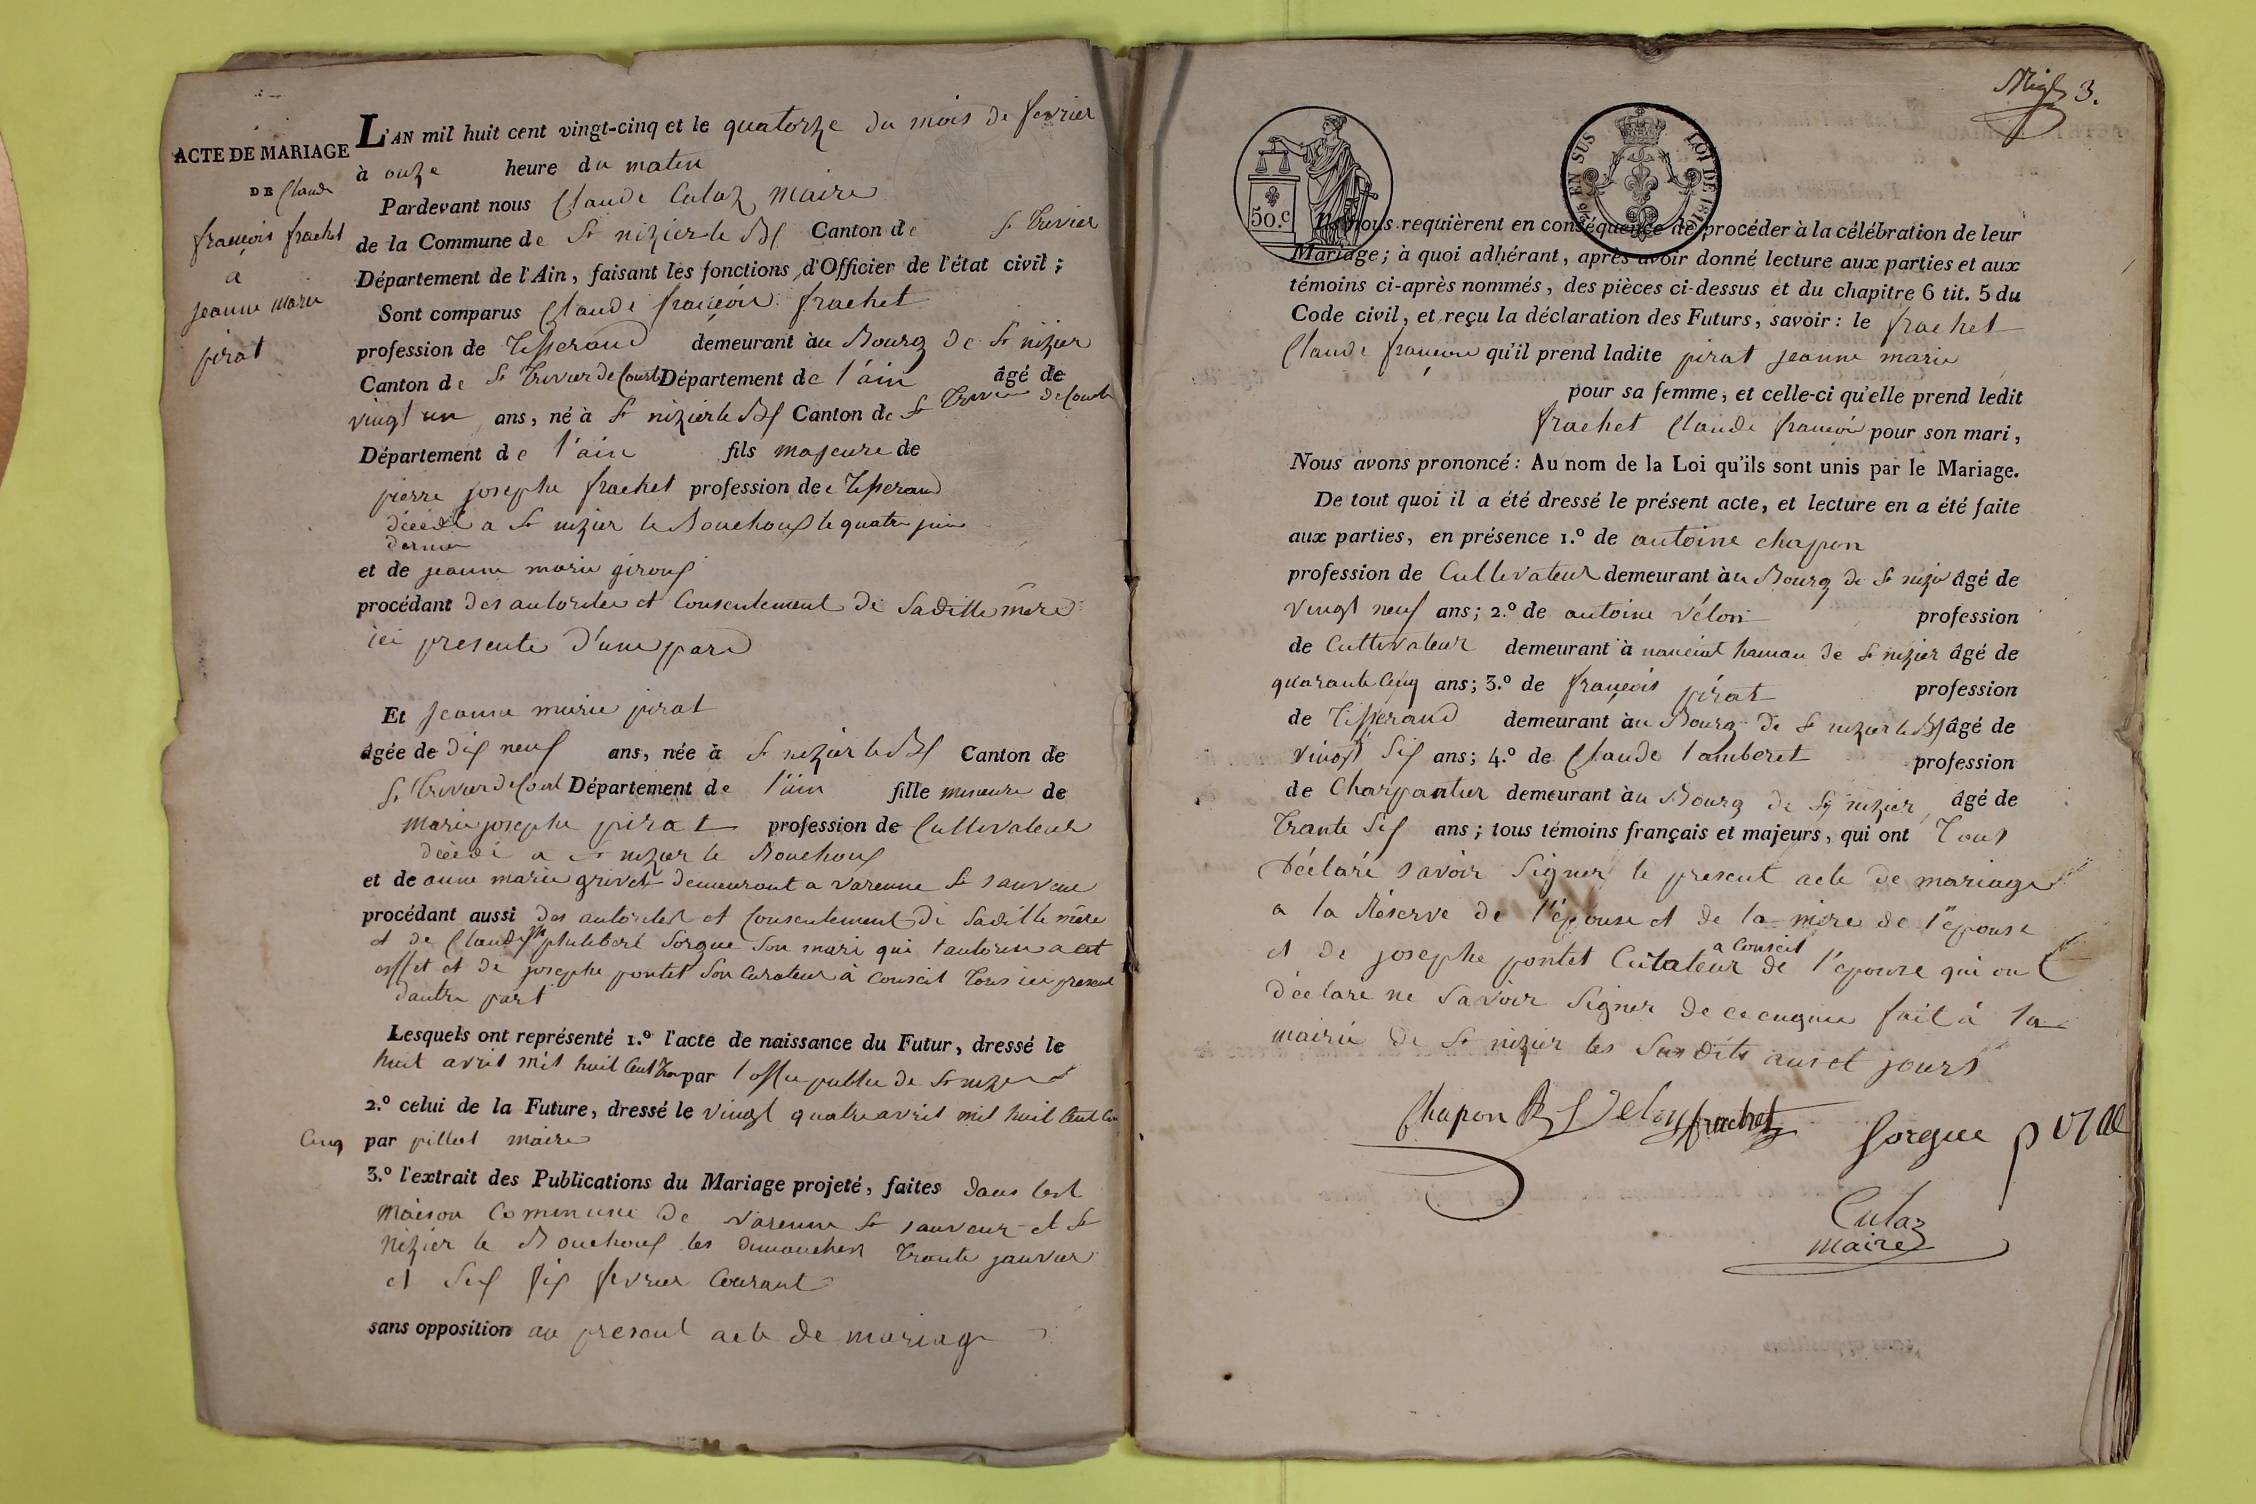 ACTE DE MARIAGE
DE Claude
françois frachet
à
jeanne marie
pirat
L'AN mil huit cent vingt-cinq et le quatorze du mois de fevrier
à onze heure du matin
Pardevant nous Claude Culaz Maire
de la Commune de St nizier le Bx Canton de St Trivier
Département de l'Ain, faisant les fonctions d'Officier de l'état civil;
Sont comparus Claude françois frachet
profession de Tisserand demeurant au Bourg de St nizier
Canton de St Trivier de Court Département de l'ain âgé de
vingt un ans, né à St nizier le Bx Canton de St Trivier de Court
Département de l'ain fils majeure de
pierre josephe frachet profession de Tisserand
décédé a St nizier le Bouchoux le quatre juin
dernier
et de jeanne marie giroux
procédant des autorites et Consentement de Saditte mere
ici presente d'une pard
Et jeanne marie pirat
âgée de dix neuf ans, née à St nizier le Bx Canton de
St Trivier de Court Département de l'ain fille mineure de
Marie josephe pirat profession de Cultivateur
décédé a St nizier le Bouchoux
et de anne marie grivet demeurant a varenne St sauveur
procédant aussi des autorites et Consentement de Saditte mere
et de Claude philibert Sorgue Son mari qui l'autorise a cet
effet et de josephe pontet Son Curateur à Conseil Tous ici present
dautre part
Lesquels ont représenté 1.º l'acte de naissance du Futur, dressé le
huit avril mil huit Cent par l'off publie de St nizier
2.º celui de la Future, dressé le vingt quatre avril mil huit Cent
Cinq par pillet maire
3.º l'extrait des Publications du Mariage projeté, faites dans
Maison Commune de varenne St sauveur et St
Nizier le Bouchoux les dimanches Trante janvier
et Six fevrier Courant
sans opposition au presant acte de mariage
3.
50.c
EN SUS LOI DE 1816
Ils nous requièrent en conséquence de procéder à la célébration de leur
Mariage; à quoi adhérant, après avoir donné lecture aux parties et aux
témoins ci-après nommés, des pièces ci-dessus et du chapitre 6 tit. 5 du
Code civil, et reçu la déclaration des Futurs, savoir: le frachet
Claude françois qu'il prend ladite pirat jeanne marie
pour sa femme, et celle-ci qu'elle prend ledit
frachet Claude francois pour son mari,
Nous avons prononcé: Au nom de la Loi qu'ils sont unis par le Mariage.
De tout quoi il a été dressé le présent acte, et lecture en a été faite
aux parties, en présence 1.º de antoine chapon
profession de Cultivateur demeurant au Bourg de St nizier âgé de
vingt neuf ans; 2.º de antoine vélon profession
de Cultivateur demeurant à hamau de St nizier âgé de
quarante Cinq ans; 3.º de françois pirat profession
de Tisserand demeurant au Bourg de St nizier le Bx âgé de
vingt Six ans; 4.º de Claude lamberet profession
de Charpantier demeurant au Bourg de St nizier âgé de
Trante Six ans; tous témoins français et majeurs, qui ont Tous
Déclaré savoir Signer le present acte de mariage
a la Réserve de l'épouse et de la mere de l'epouse
et de josephe pontet Curateur a Conseil de l'epouse qui ont
déclare ne Savoir Signer de ce enquis fait à la
mairie de St nizier les Susdits an et jours
Chapon Velon frachet Sorgue pirat
Culaz
maire